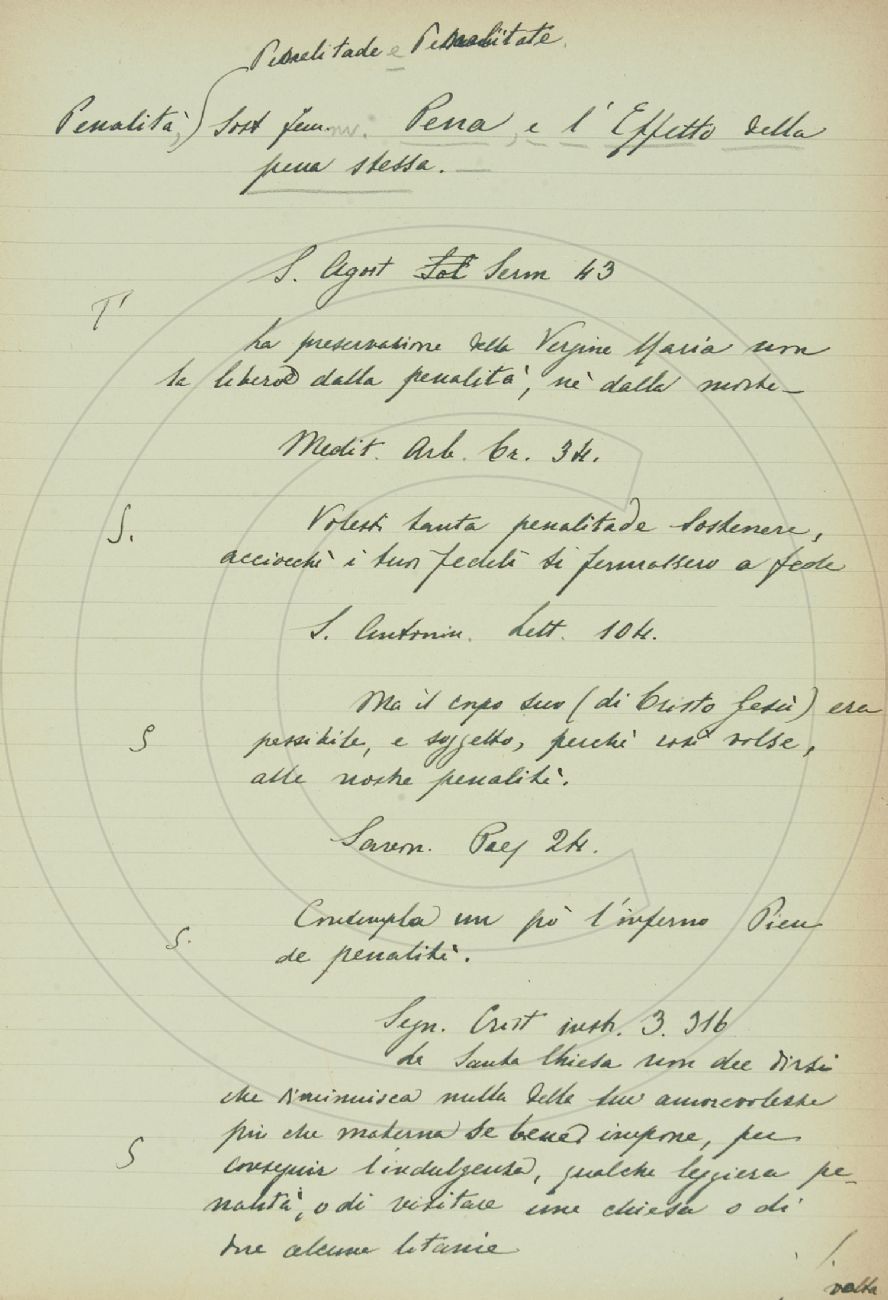 Penalitade e Penalitate.
Penalità, Sost fem. Pena, e l'Effetto della
pena stessa. —
S. Agost Sol Serm 43
T'
La preservazione della Vergine Maria non
la liberò dalla penalità, nè dalla morte —
Medit. Arb. Cr. 34.
S. Volesti tanta penalitade sostenere,
acciocchè i tuoi fedeli si fermassero a fede
S. Antonin. Lett. 104.
Ma il corpo suo (di Cristo Gesù) era
S passibile, e soggetto, perchè così volse,
alle nostre penalità.
Savon. Pred 24.
S. Contempla un pò l'inferno Pien
de penalità.
Segn. Crist instr. 3. 316
La Santa Chiesa non dee dirsi
che diminuisca nulla delle sue amorevolezze
più che materna se bene impone, per
S conseguir l'indulgenza, qualche leggiera pe-
nalità, o di visitare une chiesa o di
dire alcune litanie
volta